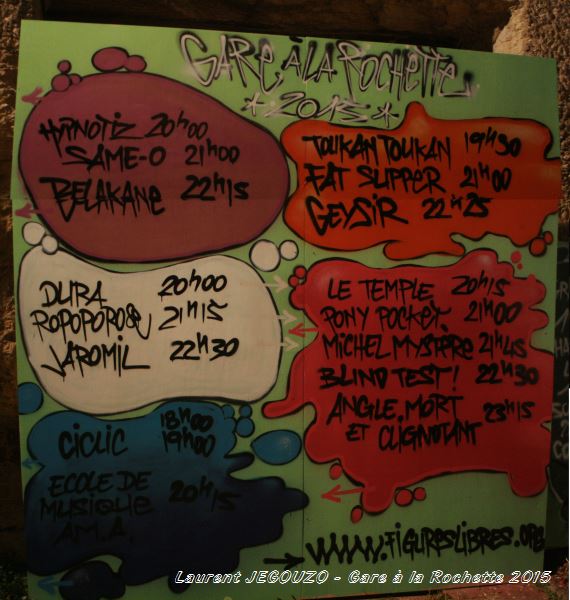 GARE À LA ROCHETTE
* 2015 *
HYPNOTIZ 20H00
SAME-O 21H00
BELAKANE 22H15
TOUKAN TOUKAN 19H30
FAT SUPPER 21H00
GEYSIR 22H25
DURA 20H00
ROPOPOROSE 21H15
JAROMIL 22H30
LE TEMPLE 20H15
PONY POCKET 21H00
MICHEL MYSTÈRE 21H45
BLIND TEST! 22H30
ANGLE MORT
ET CLIGNOTANT 23H15
CICLIC 18H00
19H00
ECOLE DE
MUSIQUE 20H15
AM.A.
WWW.FIGURESLIBRES.ORG
Laurent JEGOUZO - Gare à la Rochette 2015